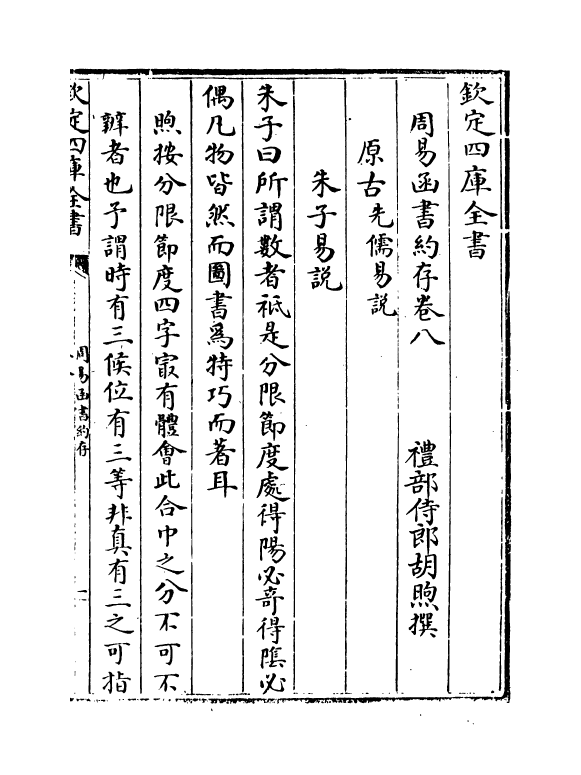 欽定四庫全書
周易函書約存卷八
禮部侍郎胡煦撰
原古先儒易説
朱子易説
朱子曰所謂數者祗是分限節度處得陽必竒得隂必
偶凡物皆然而圖書爲特巧而著耳
煦按分限節度四字㝡有體會此合中之分不可不
辨者也予謂時有三候位有三等非真有三之可指
欽定四庫全書
周易函書約存
一